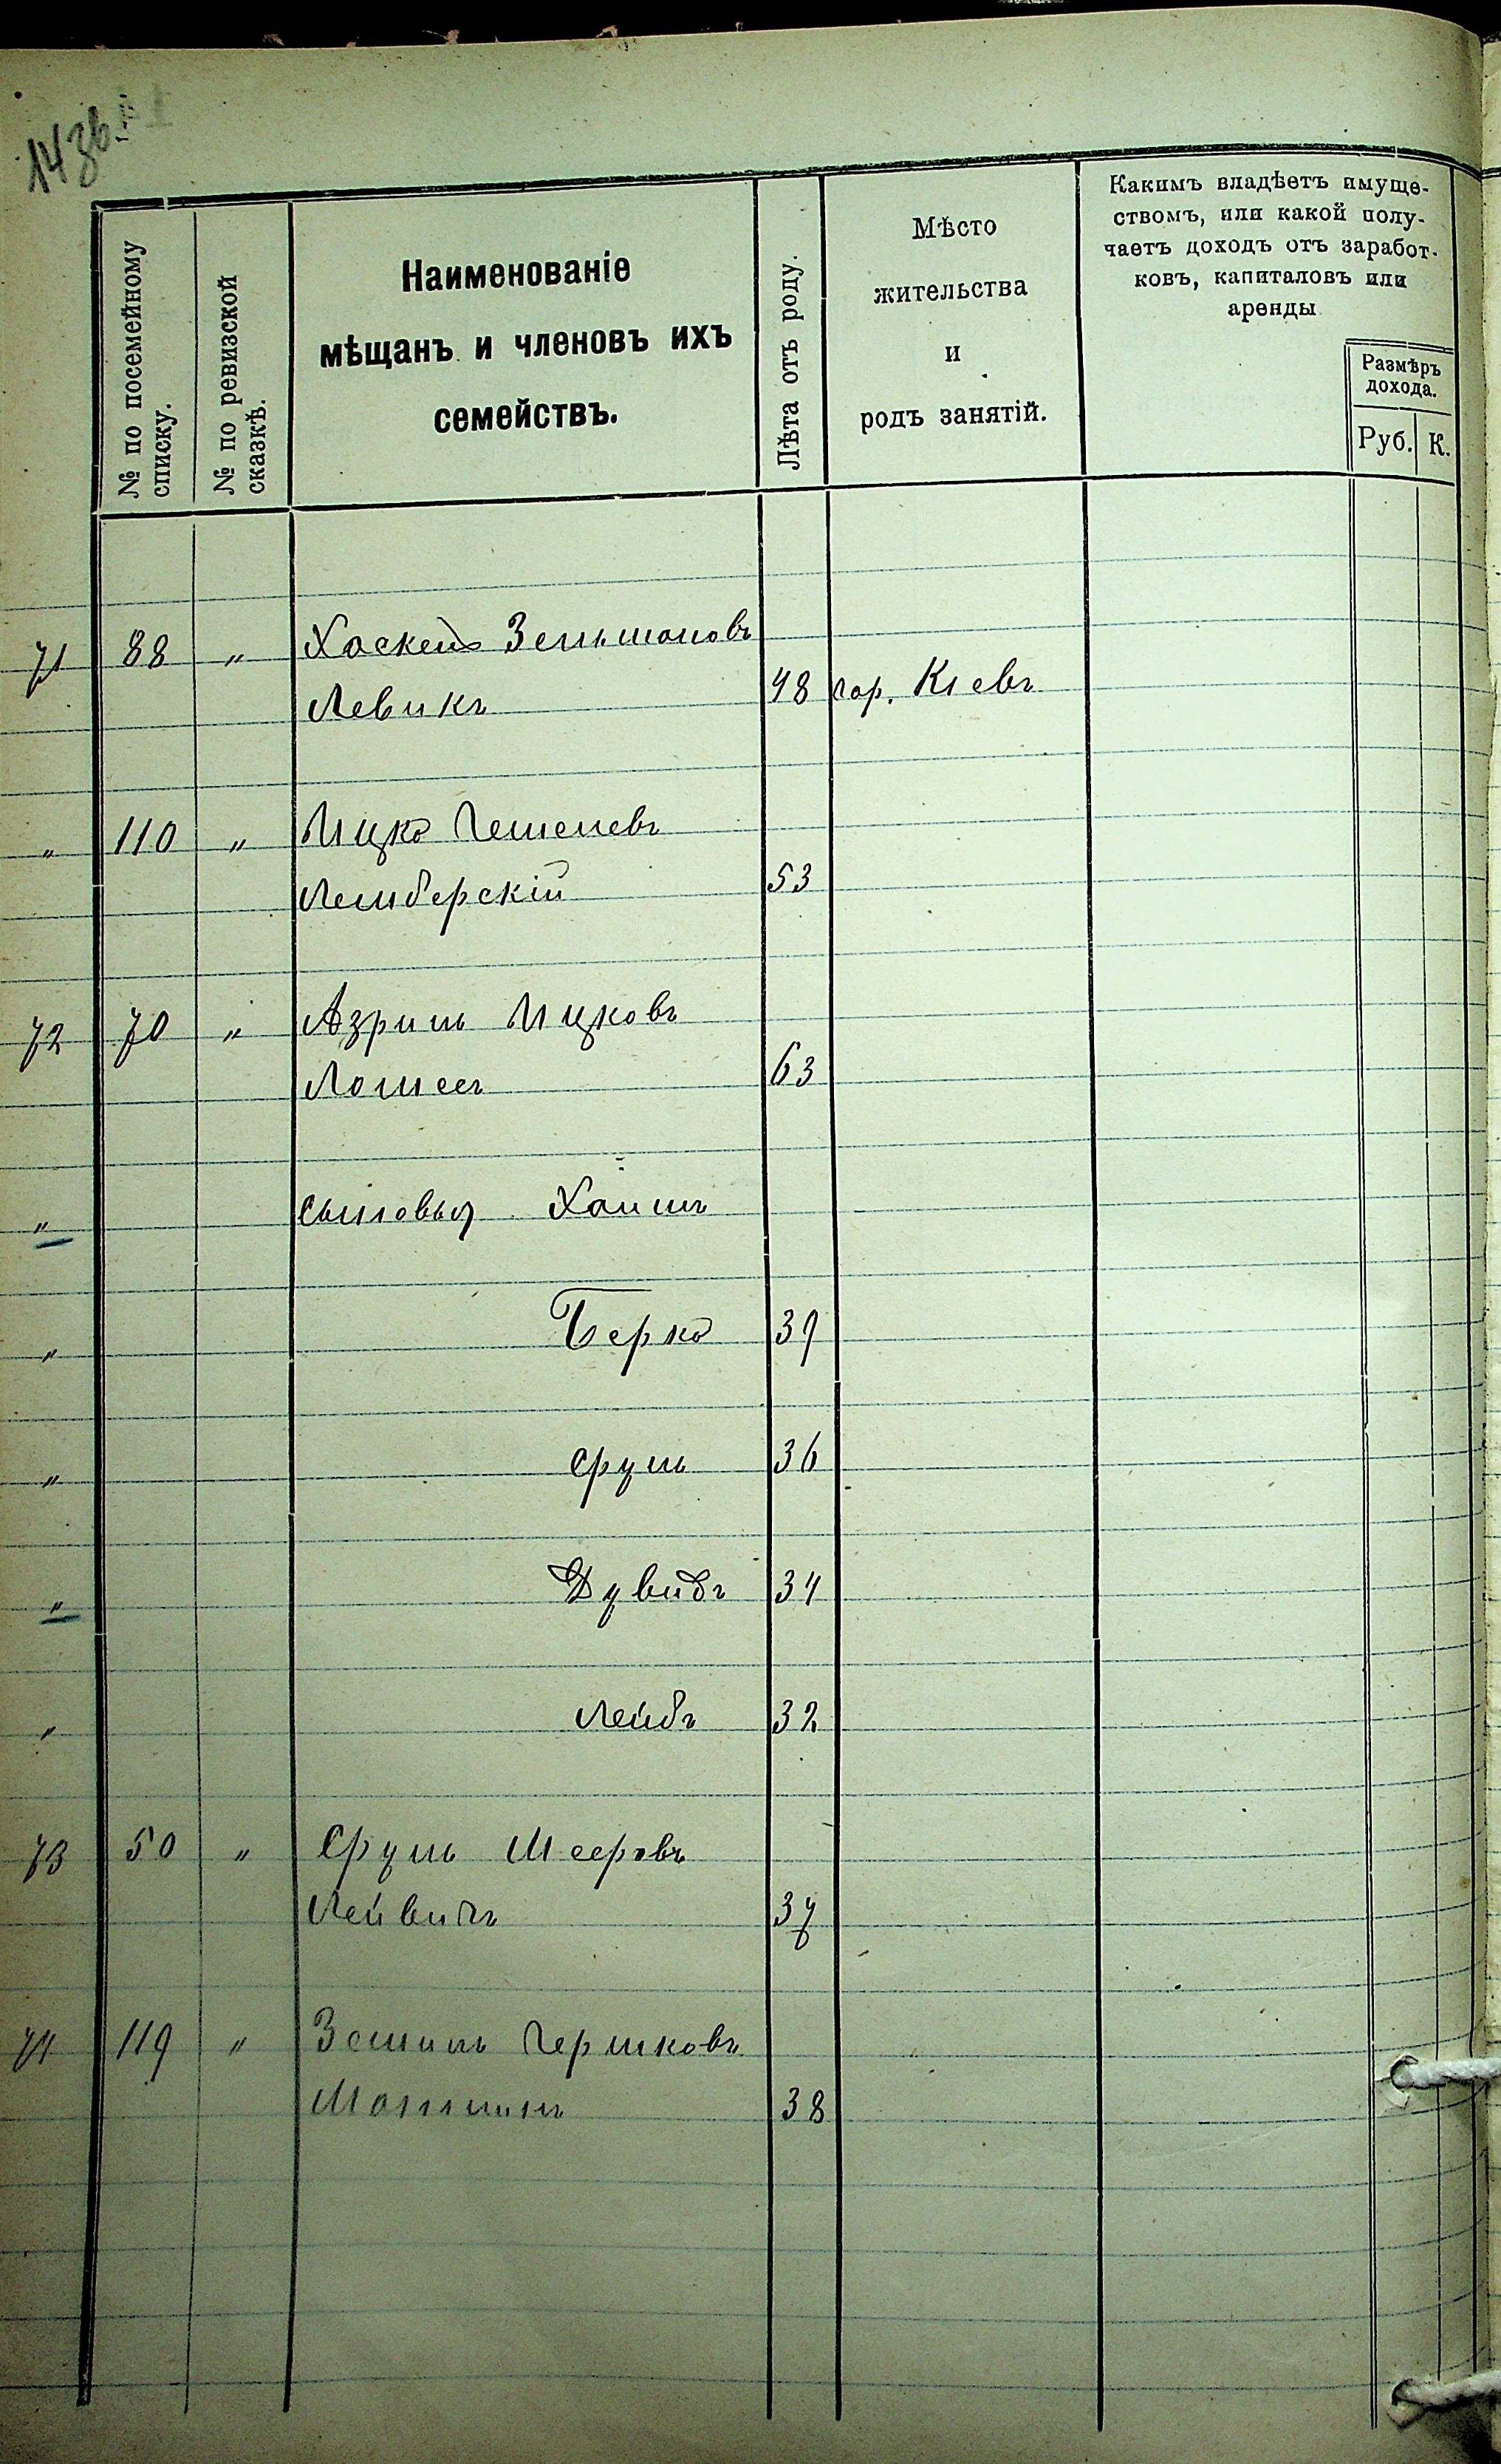 143б.
№ по посемейному
списку.
№ по ревизской
сказкѣ.
Наименованіе
мѣщанъ и членовъ ихъ
семействъ.
Лѣта отъ роду.
Мѣсто
жительства
и
родъ занятій.
Какимъ владѣетъ имуще-
ствомъ, или какой полу-
чаетъ доходъ отъ заработ-
ковъ, капиталовъ или
аренды
Размѣръ
дохода.
Руб. К.
71 88 " Хаскель Зельмановъ
Левикъ 48 гор. Кіевъ
" 110 " Ицко
Лемберскій 53
72 70 " Азриль Ицковъ
63
" Сыновья Хаимъ
" Берко 39
" Сруль 36
" Дувидъ 34
" Лейбъ 32
73 50 " Сруль Мееровъ
37
74 119 " Гершковъ
38